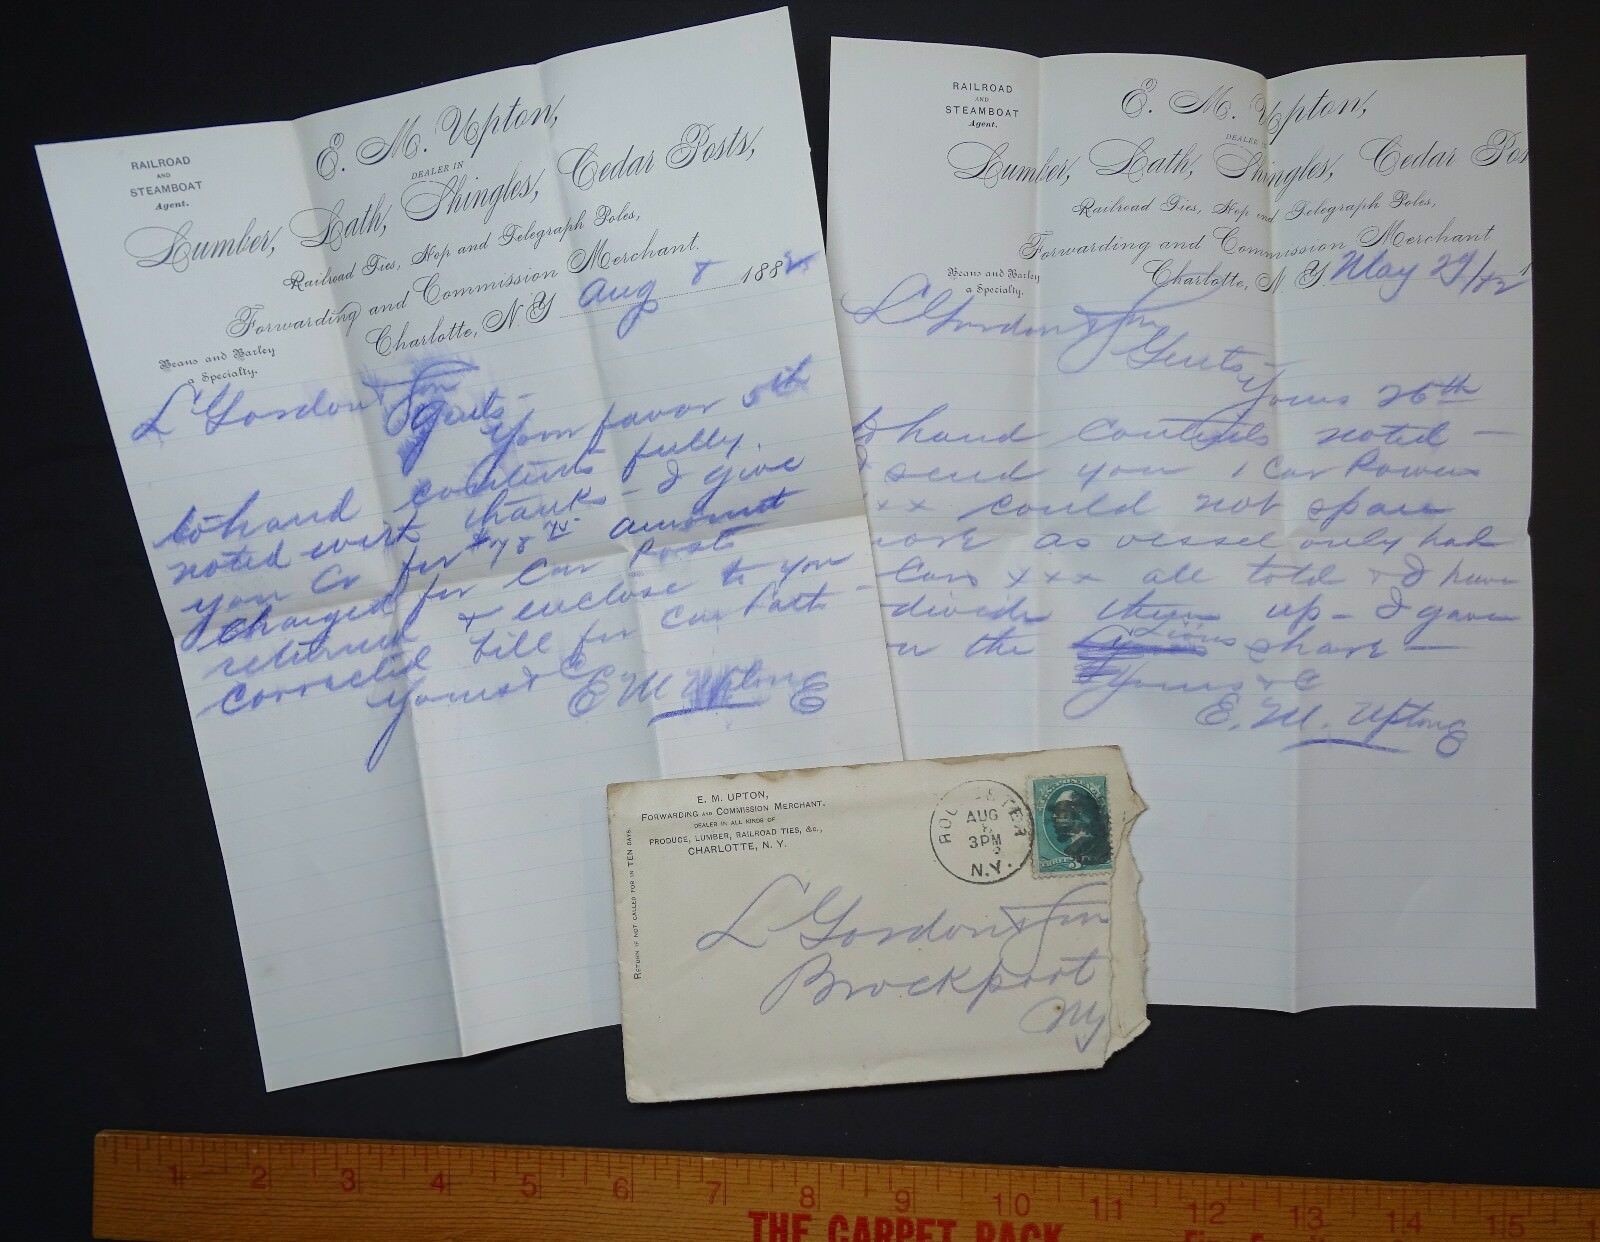 RAILROAD
AND
STEAMBOAT
Agent.
E. M. Upton,
DEALER IN
Lumber, Lath, Shingles, Cedar Posts,
Railroad Ties, Hop and Telegraph Poles,
Forwarding and Commission Merchant.
Beans and Barley
a Specialty.
Charlotte, N. Y. Aug 8 1882
L Gordon & Son
Gents-
Your favor 5th
to hand contents fully
noted with thanks - I give
you Cr for $78 amount
charged for Car Posts
returned & enclose to you
corrected bill for Car
Yours &C
E M Upton
RAILROAD
AND
STEAMBOAT
Agent.
E. M. Upton,
DEALER IN
Lumber, Lath, Shingles, Cedar Pos
Railroad Ties, Hop and Telegraph Poles,
Forwarding and Commission Merchant
Beans and Barley
a Specialty.
Charlotte, N. Y. May 29/82 1
L Gordon & Son
Gents-
Yours 26th
to hand contents noted -
I send you 1 Car
xx could not spare
more as vessel only had
Cars xxx all told & I have
divide them up - I gave
the Lions share -
Yours &C
E. M. Upton
E. M. UPTON,
FORWARDING AND COMMISSION MERCHANT.
DEALER IN ALL KINDS OF
PRODUCE, LUMBER, RAILROAD TIES, &c.,
CHARLOTTE, N. Y.
RETURN IF NOT CALLED FOR IN TEN DAYS
ROCHESTER
AUG
8
3PM
N.Y.
L Gordon & Son
Brockport
NY
1 2 3 4 5 6 7 8 9 10 11 12 13 14 15
THE CARPET RACK